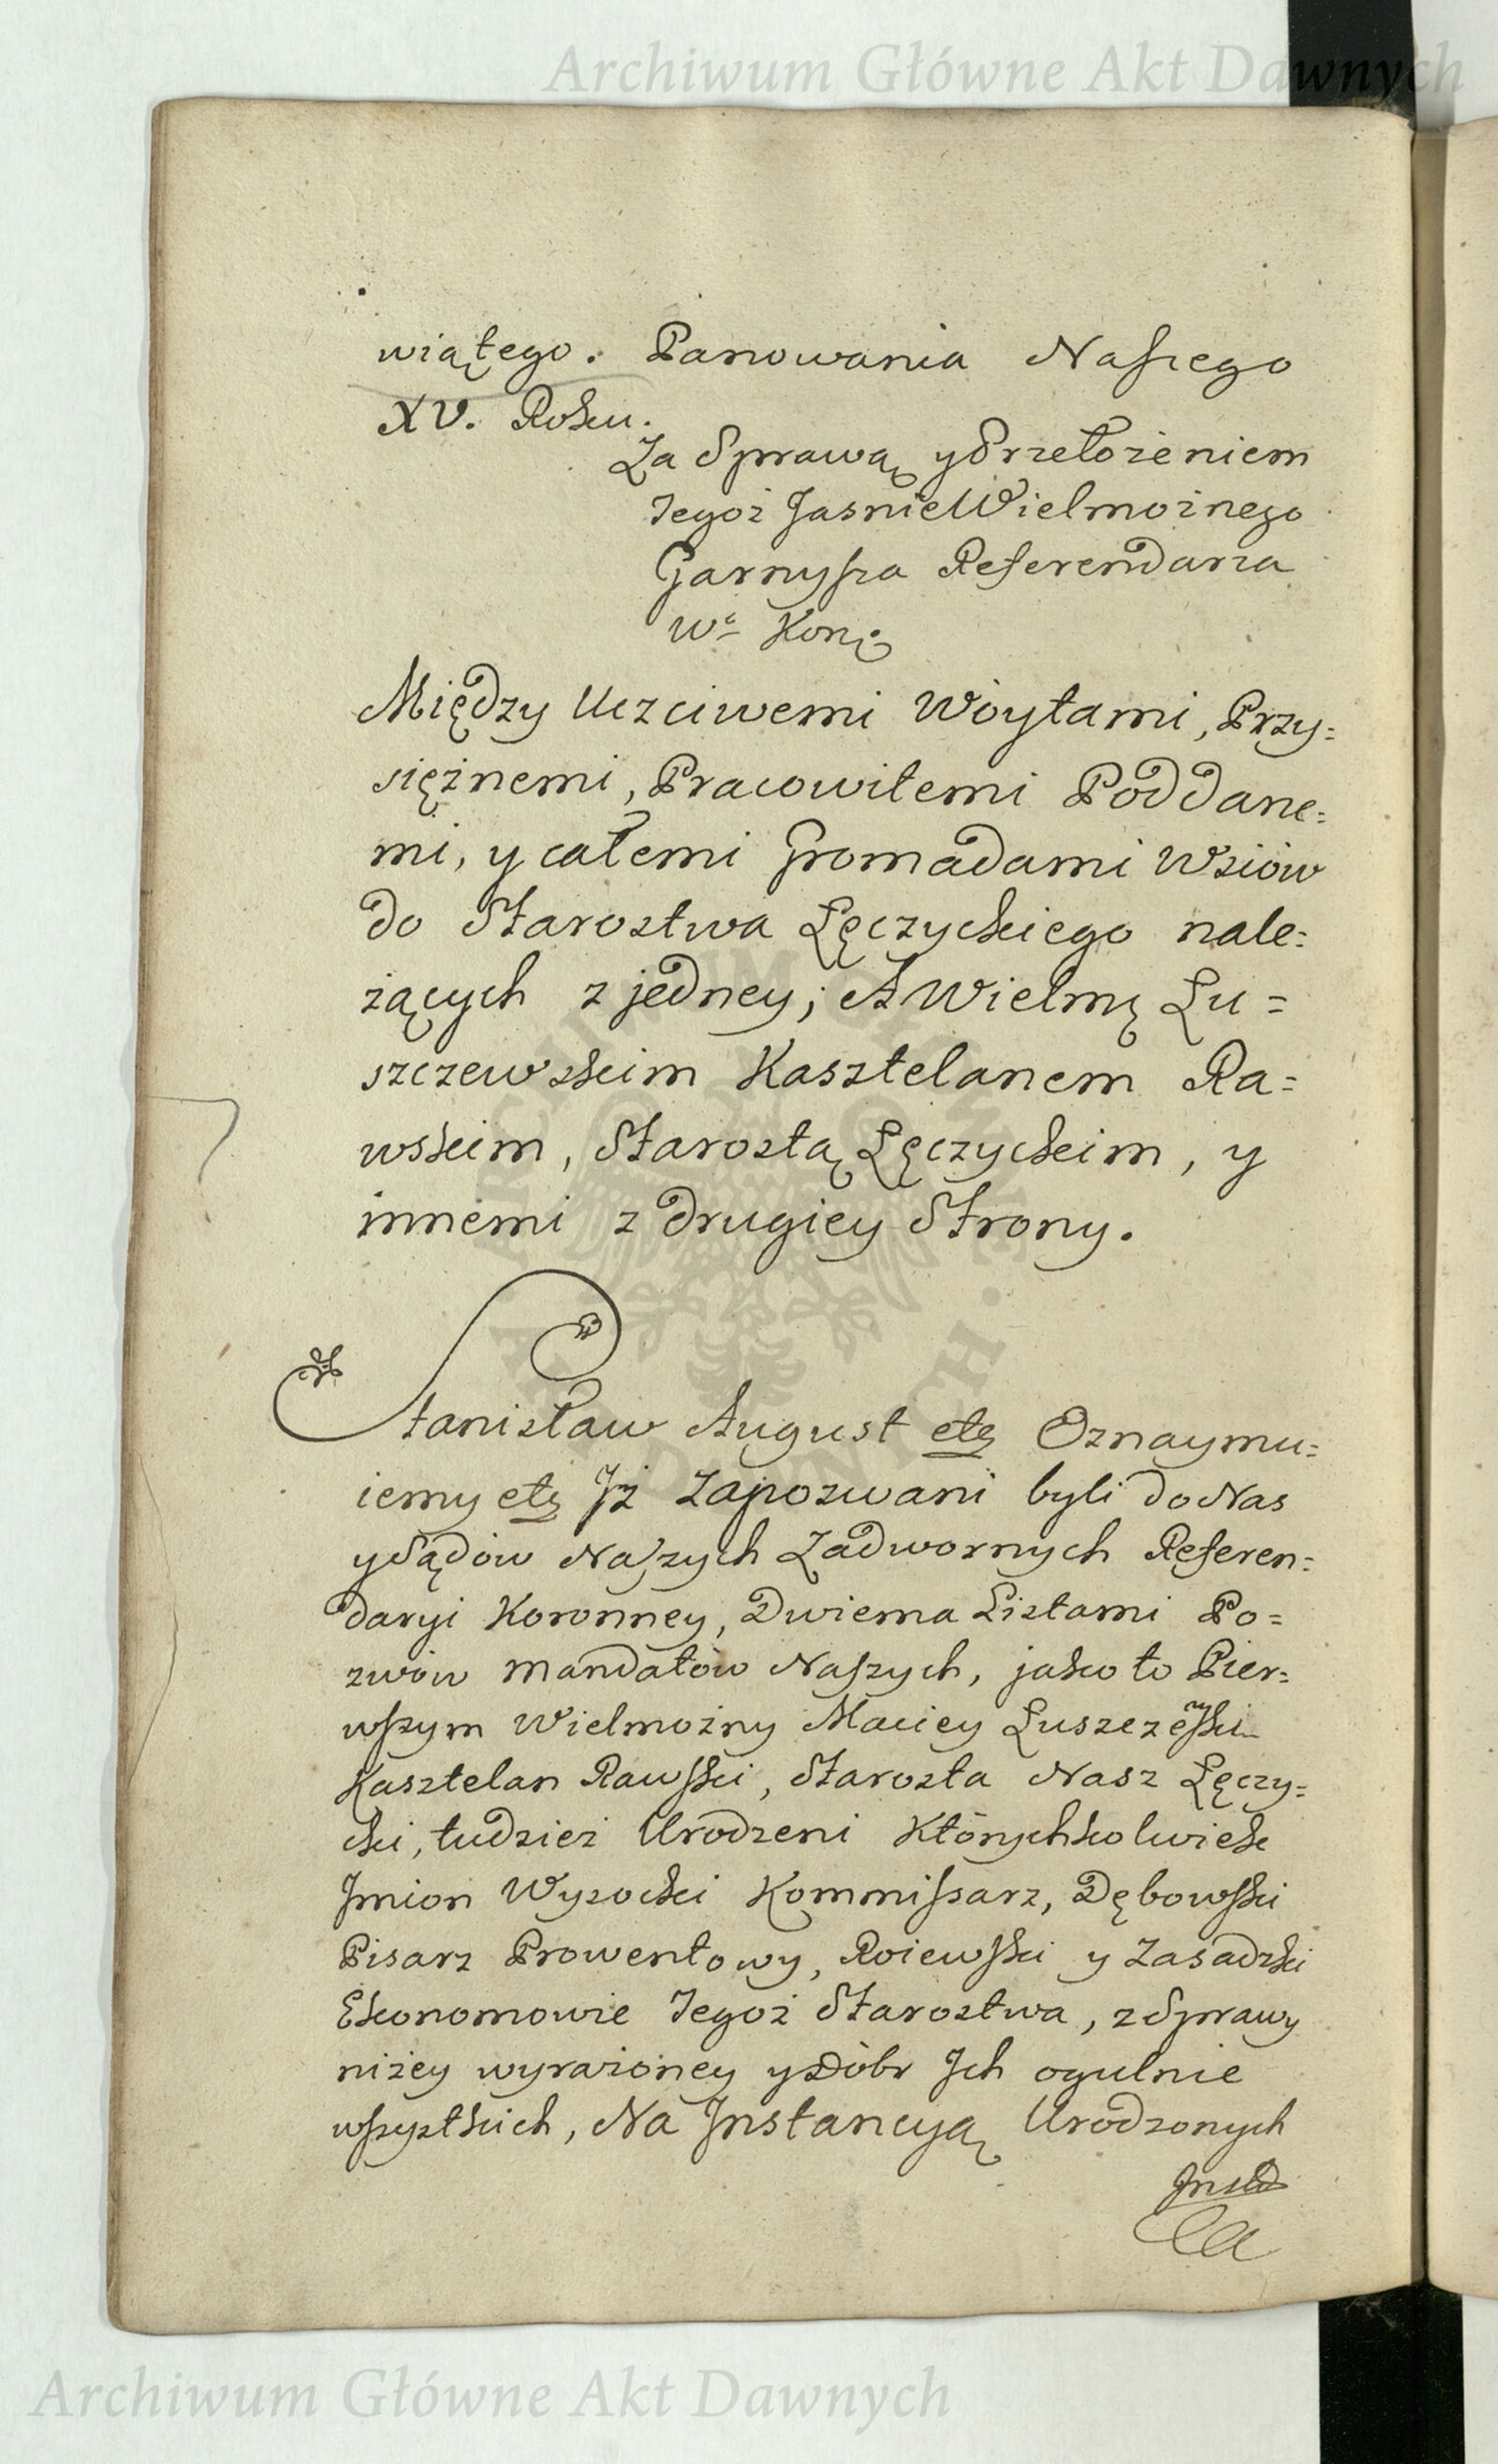 Archiwum Główne Akt Dawnych
wiątego. Panowania Naszego
XV. Roku.
Za Sprawą y Przełożeniem
Jegoż Jasnie Wielmożnego
Garnysza Referendarza
Wo Kong
Między Uczciwemi Woytami, Przy=
siężnemi, Pracowitemi Poddane=
mi, y całemi Gromadami Wsiów
do Starostwa Łęczyckiego nale=
żących z jedney; A Wielmę Łu=
szczewskim Kasztelanem Ra=
wskim, Starostą Łęczyckim, y
innemi z drugiey Strony.
Stanisław August etc Oznaymu=
iemy etc Jż Zapozwani byli do Nas
y Sądów Naszych Zadwornych Referen=
daryi Koronney, Dwiema Listami Po=
zwów Mandatów Naszych, jako to Pier=
wszym Wielmożny Maciey Łuszczewski
Kasztelan Rawski, Starosta Nasz Łęczy=
cki, tudzież Urodzeni Którychkolwiek
Jmion Wysocki Kommissarz, Dębowski
Pisarz Prowentowy, Roiewski y Zasadzki
Ekonomowie Jegoż Starostwa, z Sprawy
niżey wyrażoney y z Dóbr Jch ogulnie
wszystkich, Na Jnstancyą Urodzonych
Archiwum Główne Akt Dawnych